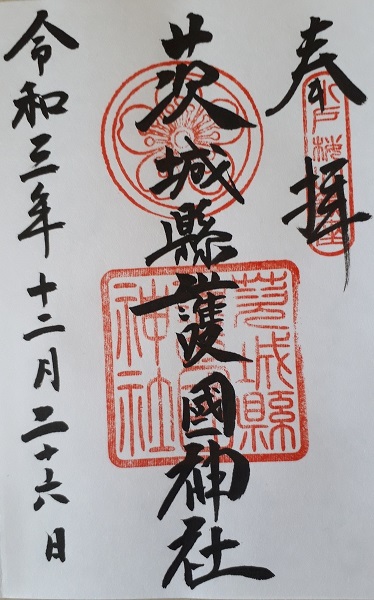 奉拝
茨城縣護國神社
令和三年十二月二十六日
茨城縣
護國
神社